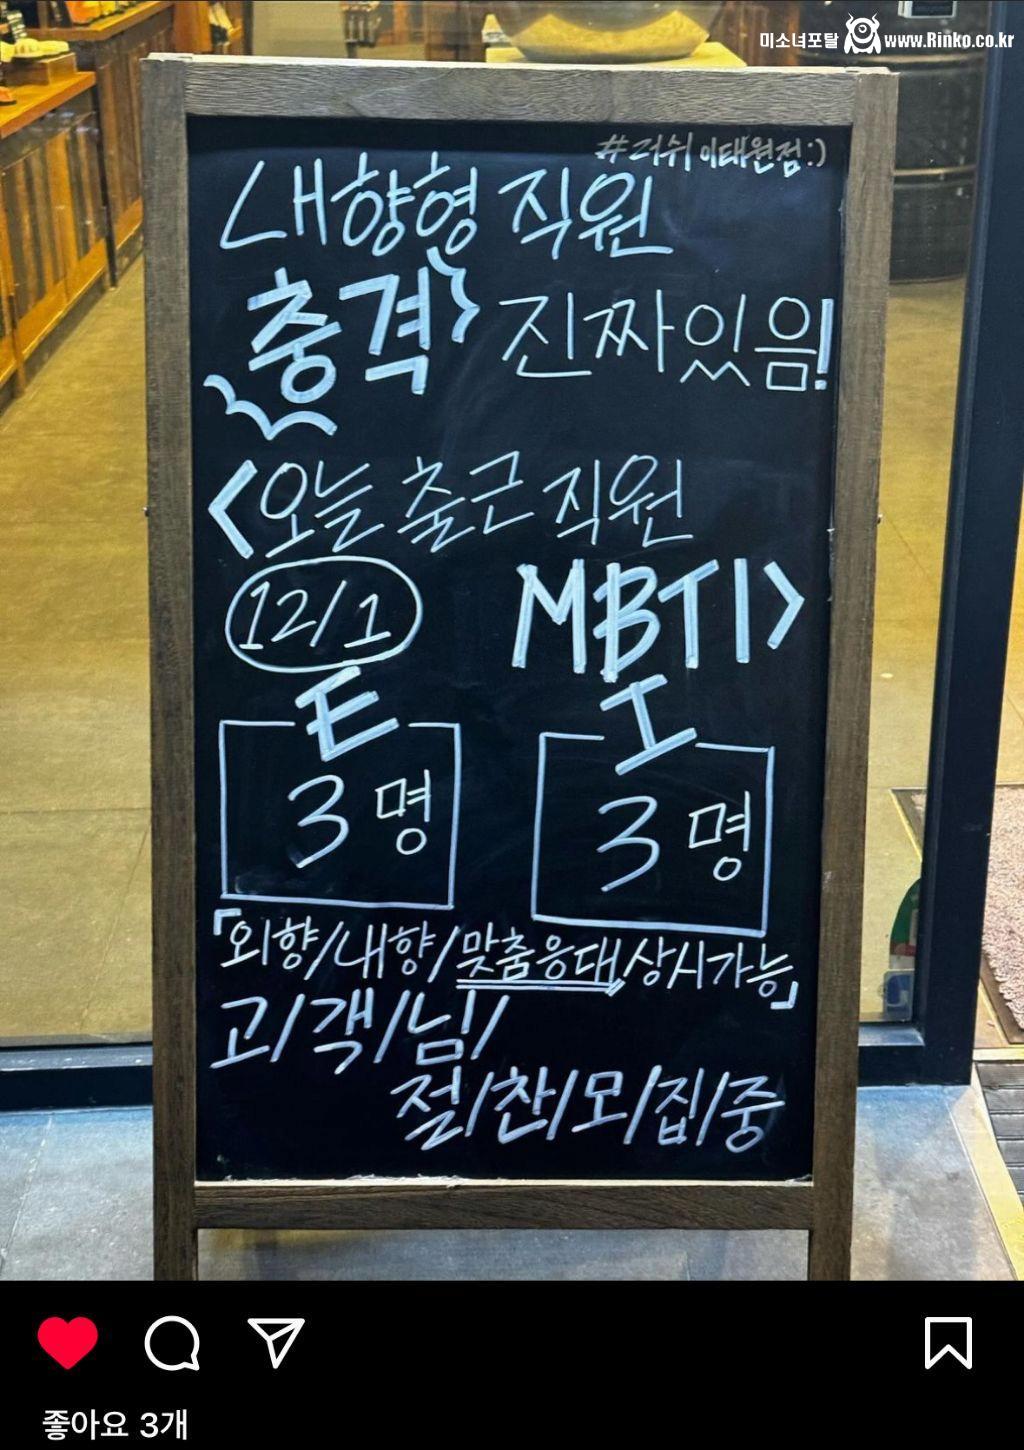 미소녀포탈 www.Rinko.co.kr
#러쉬 이태원점:)
내향형 직원
충격 진짜있음!
<오늘 출근 직원
12/1 MBTI>
E I
3명 3명
「외향/내향/맞춤응대/상시가능」
고/객/님/
절/찬/모/집/중
좋아요 3개